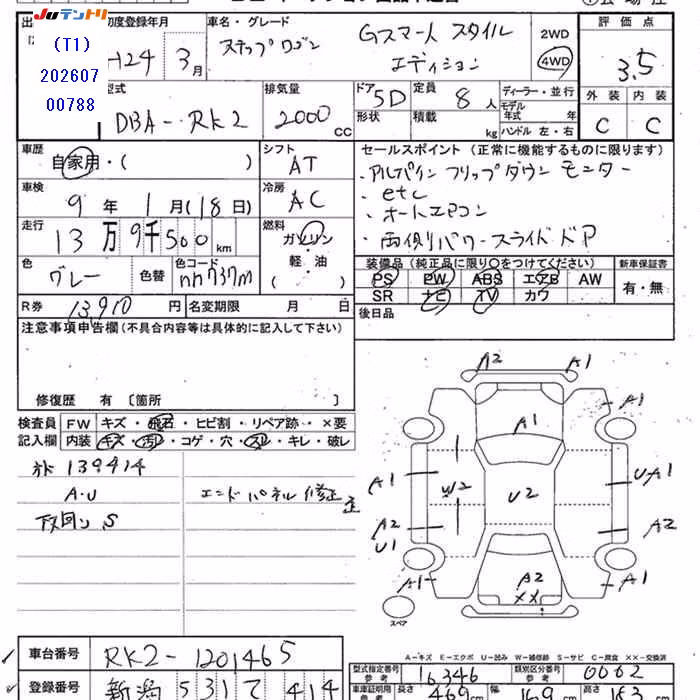 JUテントリ
(T1)
202607
00788
初度登録年月
24年 3月
車名・グレード
ステップワゴン Gスマート スタイル
エディション
2WD
4WD
評価点
3.5
外装 内装
C C
型式
DBA-RK2
排気量
2000 CC
ドア
5D
形状
定員
8人
積載
kg
ディーラー・並行
モデル
年式 年
ハンドル 左・右
車歴
自家用・( )
シフト
AT
車検
9年 1月(18日)
冷房
AC
走行
13万9千500km
燃料
ガソリン
軽・油
( )
色
グレー 色替
色コード
NH737M
セールスポイント (正常に機能するものに限ります)
・アルパイン フリップダウン モニター
・etc
・オートエアコン
・両側パワースライドドア
装備品(純正品に限り○をつけてください)
PS PW ABS エアB AW
SR ナビ TV カワ
新車保証書
有・無
R券 13,910円
名変期限 月 日
後日品
注意事項申告欄(不具合内容等は具体的に記入して下さい)
修復歴 有〔箇所 〕
検査員 FW キズ・飛石・ヒビ割・リペア跡・×要
記入欄 内装 キズ・汚れ・コゲ・穴・スレ・キレ・破レ
139414
A・U
下回り S
エンドパネル修正
A2 A1
A1
A1 W2 U2 U・A1
A2 A2
U1
A1 A2 A1
××
スペア
A-キズ E-エクボ U-凹み W-補修跡 S-サビ C-腐食 ××-交換済
車台番号 RK2-1201465
型式指定番号
参考
16346
類別区分番号
参考
0062
登録番号 新潟 531 て 414
車庫証明用
参考
長さ 469 cm 幅 169 cm 高さ 183 cm